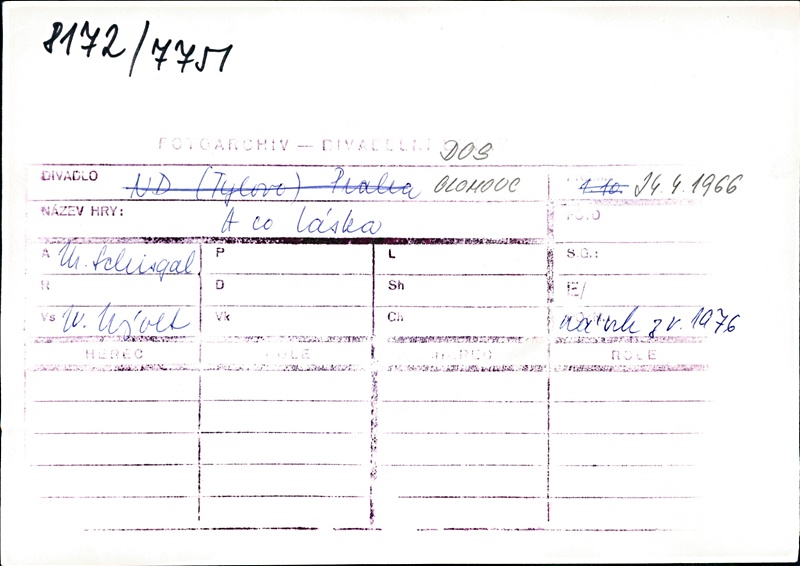 8172/7751
FOTOARCHIV — DIVADELNÍ DOS
DIVADLO ND (Tylovo) Praha OLOMOUC 1.10. 24.4.1966
NÁZEV HRY: A co láska FOTO
A M. Schisgal P L S.G.:
R D Sh E/
Vs W. Vk Ch z r. 1976
HEREC ROLE HEREC ROLE